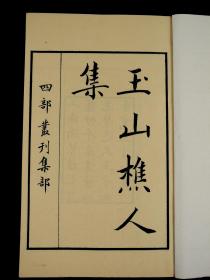 玉山樵人
集
四部叢刊集部